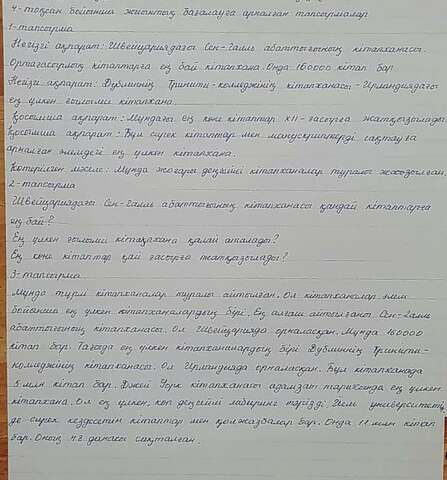 4-тоқсан бойынша жиынтық бағалауға арналған тапсырмалар
1-тапсырма
Негізгі ақпарат: Швейцариядағы Сен-Галль аббаттығының кітапханасы.
Ортағасырлық кітаптарға ең бай кітапхана. Онда 160000 кітап бар
Негізгі ақпарат: Дублиннің Тринити-колледжінің кітапханасы - Ирландиядағы
ең үлкен ғылыми кітапхана
Қосымша ақпарат: Мұндағы ең көне кітаптар XII-ғасырға жатқызылады
Қосымша ақпарат: Бұл сирек кітаптар мен манускриптерді сақтауға
арналған әлемдегі ең үлкен кітапхана.
Көтерілген мәселе: Мұнда жоғары деңгейлі кітапханалар туралы жазылған.
2-тапсырма
Швейцариядағы Сен-Галль аббаттығының кітапханасы қандай кітаптарға
ең бай?
Ең үлкен ғылыми кітапхана қалай аталады?
Ең көне кітаптар қай ғасырға жатқызылады?
3-тапсырма
Мұнда түрлі кітапханалар туралы айтылған. Ол кітапханалар әлем
бойынша ең үлкен кітапханалардың бірі. Ең алғаш айтылғаны Сен-Галль
аббаттығының кітапханасы. Ол Швейцарияда орналасқан. Мұнда 160000
кітап бар. Тағыда ең үлкен кітапханалардың бірі Дублиннің Тринити-
колледжінің кітапханасы. Ол Ирландияда орналасқан. Бұл кітапханада
5 млн кітап бар. Джей Уокер кітапханасы адамзат тарихында ең үлкен
кітапхана. Ол ең үлкен, көп деңгейлі лабиринт тәрізді. Йель университетін
де сирек кездесетін кітаптар мен қолжазбалар бар. Онда 11 млн кітап
бар. Оның 48 данасы сақталған.